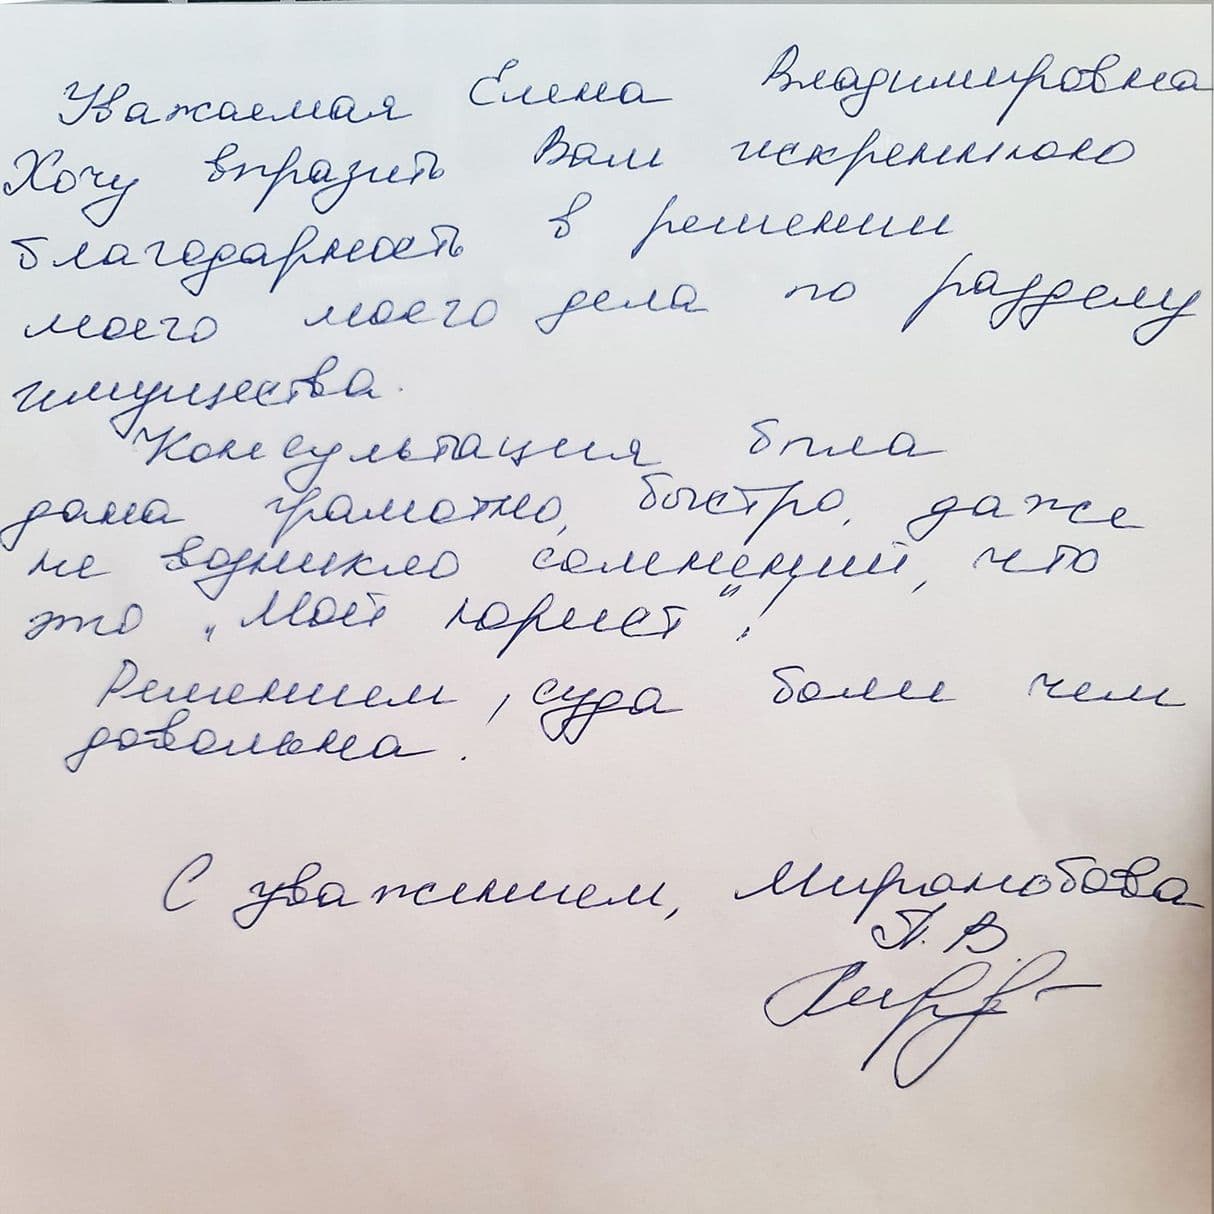 Уважаемая Елена Владимировна
Хочу выразить Вам искреннюю
благодарность в решении
моего моего дела по разделу
имущества.
Консультация была
дана грамотно, быстро, даже
не возникло сомнений, что
это "Мой юрист".
Решением, суда более чем
довольна.
С уважением,
В.